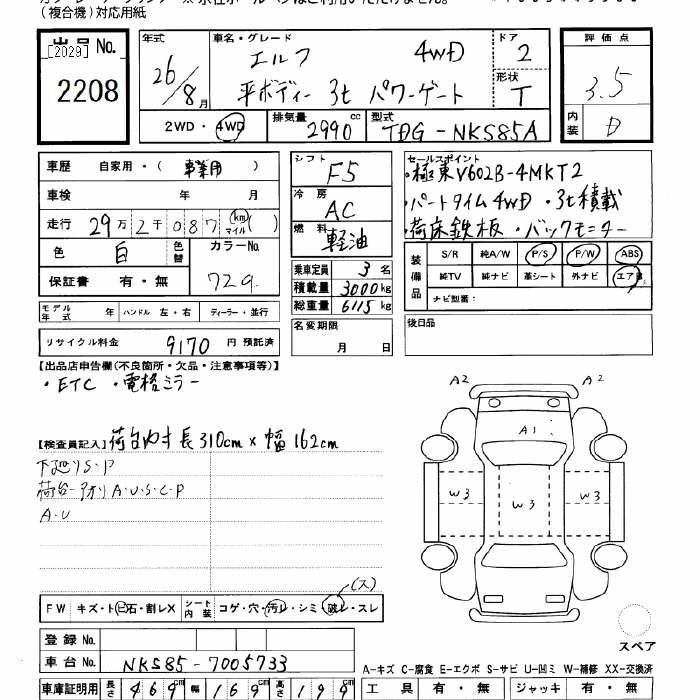 (複合機)対応用紙
出品 No.
[2029]
2208
年式 26/8月
車名・グレード エルフ 4WD
平ボディー 3t パワーゲート
ドア 2
形状 T
2WD・4WD 排気量 2990 cc 型式 TDG-NKS85A
評価点 3.5
内装 D
車歴 自家用・(事業用)
車検 年 月
走行 29万2千087 km マイル ( )
色 白 色替 カラーNo. 729
保証書 有・無
シフト F5
冷房 AC
燃料 軽油
乗車定員 3名
積載量 3000kg
総重量 6115kg
名変期限
月 日
セールスポイント
・極東V602B-4MKT2
・パートタイム4WD ・3t積載
・荷床鉄板 ・バックモニター
装備品 S/R 純A/W P/S P/W ABS
純TV 純ナビ 革シート 外ナビ エア
ナビ型番:
後日品
モデル年式 年 ハンドル 左・右 ディーラー・並行
リサイクル料金 9170 円 預託済
【出品店申告欄(不良箇所・欠品・注意事項等)】
・ETC ・電格ミラー
【検査員記入】荷台内寸 長310cm×幅162cm
下廻りS・P
荷台-アオリA・U・S・C・P
A・U
A2 A2
A1
W3 W3 W3
(ス)
FW キズ・ト石・割レX シート内装 コゲ・穴・汚レ・シミ 破レ・スレ
スペア
登録 No.
車台 No. NKS85-7005733
A-キズ C-腐食 E-エクボ S-サビ U-凹ミ W-補修 XX-交換済
車庫証明用 長さ 469cm 幅 169cm 高さ 199cm
工具 有・無 ジャッキ 有・無